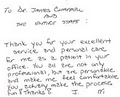 To Dr. James Campbell
AND
THE OFFICE STAFF:
Thank you for your excellent
service and personal care
for me as a patient in your
office. You all are not only
professional, but are personable,
and make me feel comfortable.
You actually make the process
fun! Thanks! J. M.